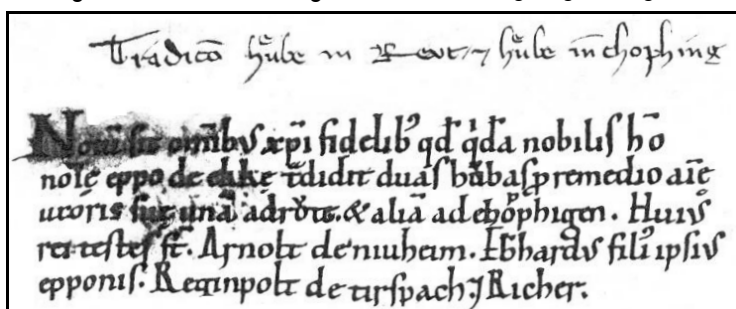 Tradicō hůbe in Revt ⁊ hůbe in chophing
Notū sit omībus xp̄i fidelib⁹ qd̄ qͥdā nobilis hō
noīe eppo de ekke t̄didit duas hůbas p remedio aīe
uxoris sue unā ad rŏte. & aliā ad chŏphigen. Huiꝰ
rei testes st̄. Arnolt de niuheim. Eb̄hardus filiꝰ ipsius
epponis. Reginpolt de tirspach ⁊ Richer.